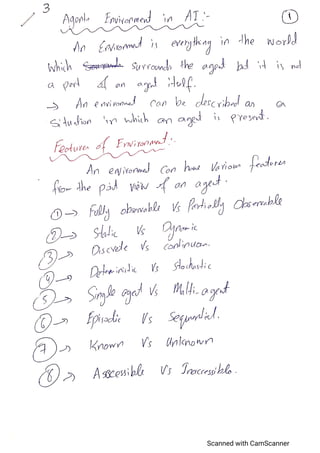 3
Agents Environment in AI :- 1
An Environment is everything in the world
which surrounds the agent but it is not
a part of an agent itself.
→ An environment can be described as a
situation in which an agent is present.
Features of Environment :-
An environment can have various features
from the point view of an agent.
① → Fully observable Vs Partially Observable
② → Static Vs Dynamic
③ → Discrete Vs continuous
④ → Deterministic Vs Stochastic
⑤ → Single agent Vs Multi-agent
⑥ → Episodic Vs Sequential.
⑦ → Known Vs Unknown
⑧ → Accessible Vs Inaccessible.
Scanned with CamScanner